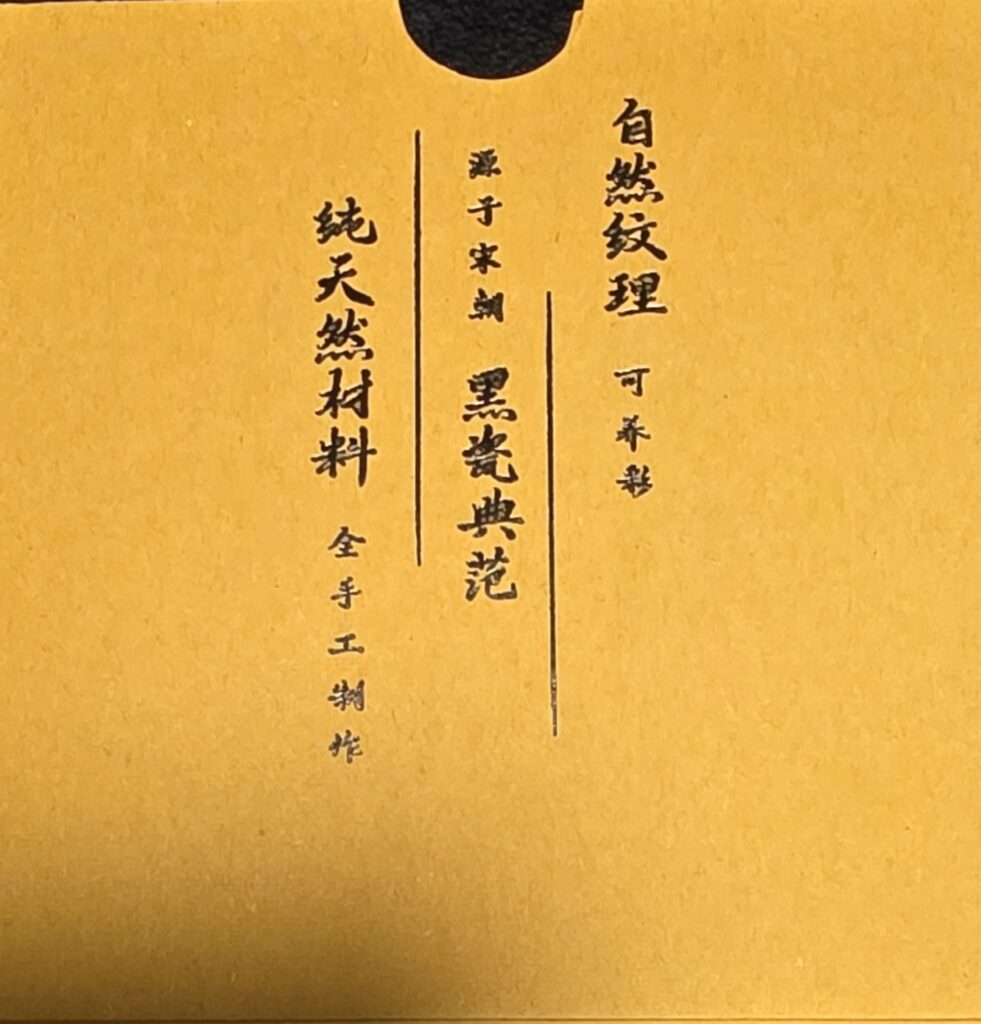 自然纹理 可养彩
源于宋朝 黑瓷典范
纯天然材料 全手工制作